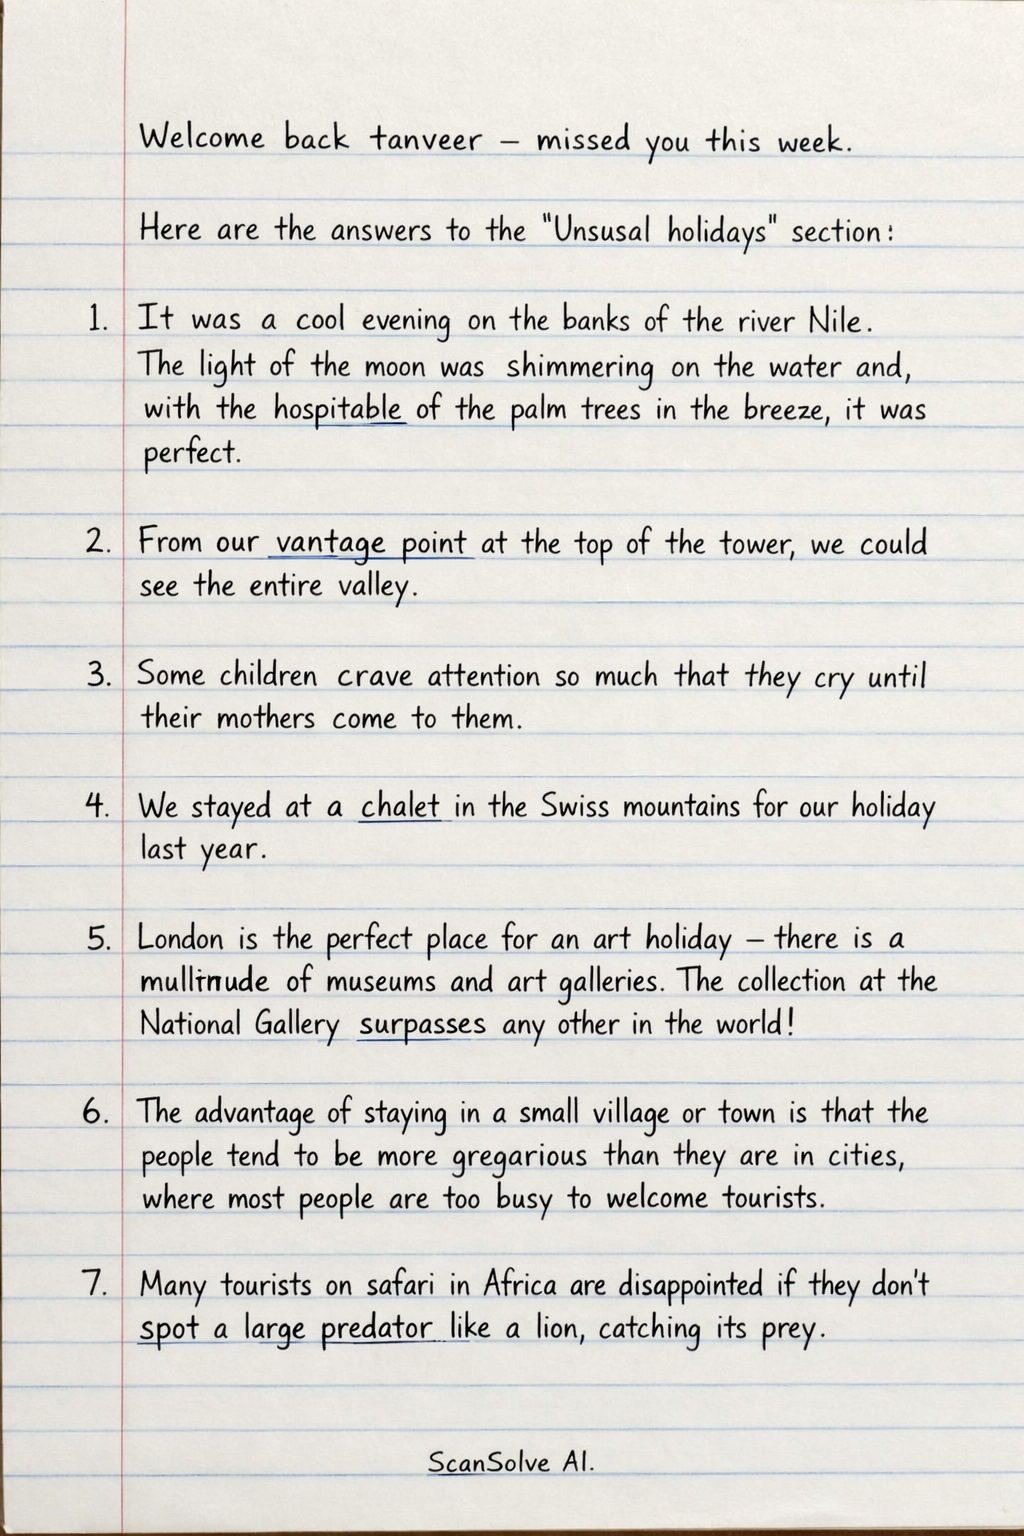 Welcome back tanveer – missed you this week.
Here are the answers to the "Unsusal holidays" section:
1. It was a cool evening on the banks of the river Nile.
The light of the moon was shimmering on the water and,
with the hospitable of the palm trees in the breeze, it was
perfect.
2. From our vantage point at the top of the tower, we could
see the entire valley.
3. Some children crave attention so much that they cry until
their mothers come to them.
4. We stayed at a chalet in the Swiss mountains for our holiday
last year.
5. London is the perfect place for an art holiday – there is a
of museums and art galleries. The collection at the
National Gallery surpasses any other in the world!
6. The advantage of staying in a small village or town is that the
people tend to be more gregarious than they are in cities,
where most people are too busy to welcome tourists.
7. Many tourists on safari in Africa are disappointed if they don't
spot a large predator like a lion, catching its prey.
ScanSolve AI.